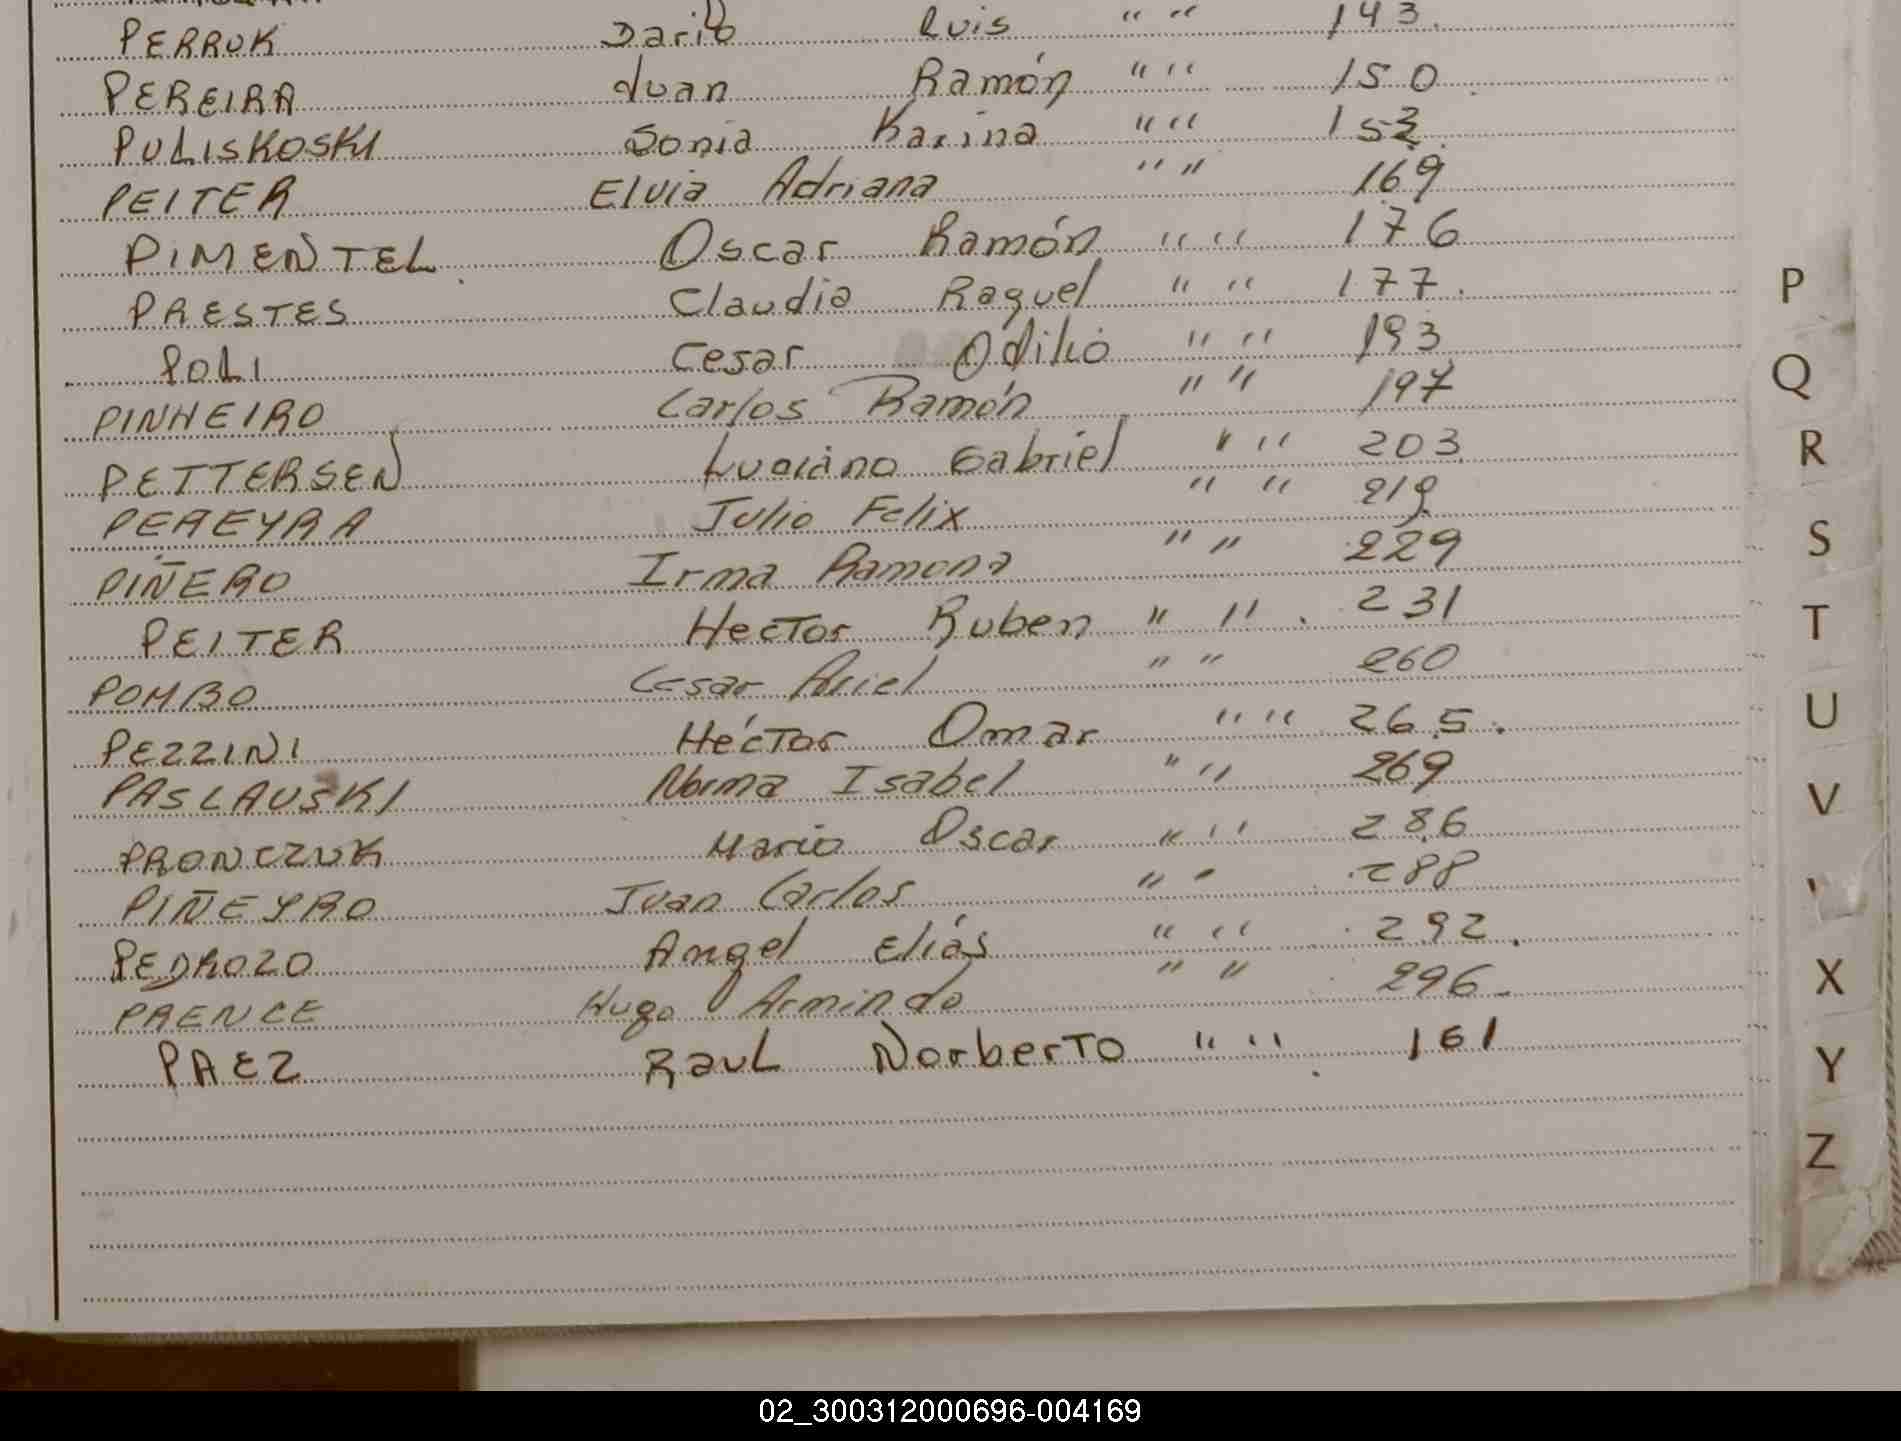 PERRUK Dario Luis " " 143.
PEREIRA Juan Ramón " " 150.
PULISKOSKI Sonia Karina " "
PEITER Elvia Adriana " " 169
PIMENTEL Oscar Ramón " " 176
PRESTES Claudia Raquel " " 177.
POLI Cesar Odilio " " 193
PINHEIRO Carlos Ramón " " 197
PETTERSEN Luciano Gabriel " " 203
PEREYRA Julio Felix " " 219
PIÑERO Irma Ramona " " 229
PEITER Hector Ruben " " 231
POMBO Cesar Ariel " " 260
PEZZINI Héctor Omar " " 265.
PASLAUSKI Norma Isabel " " 269
PRONCZUK Mario Oscar " " 286
PIÑEYRO Juan Carlos " " 288
PEDROZO Angel Elías " " 292.
PAENCE Hugo Armindo " " 296
PAEZ Raul Norberto " " 161
P
Q
R
S
T
U
V
X
Y
Z
02_300312000696-004169